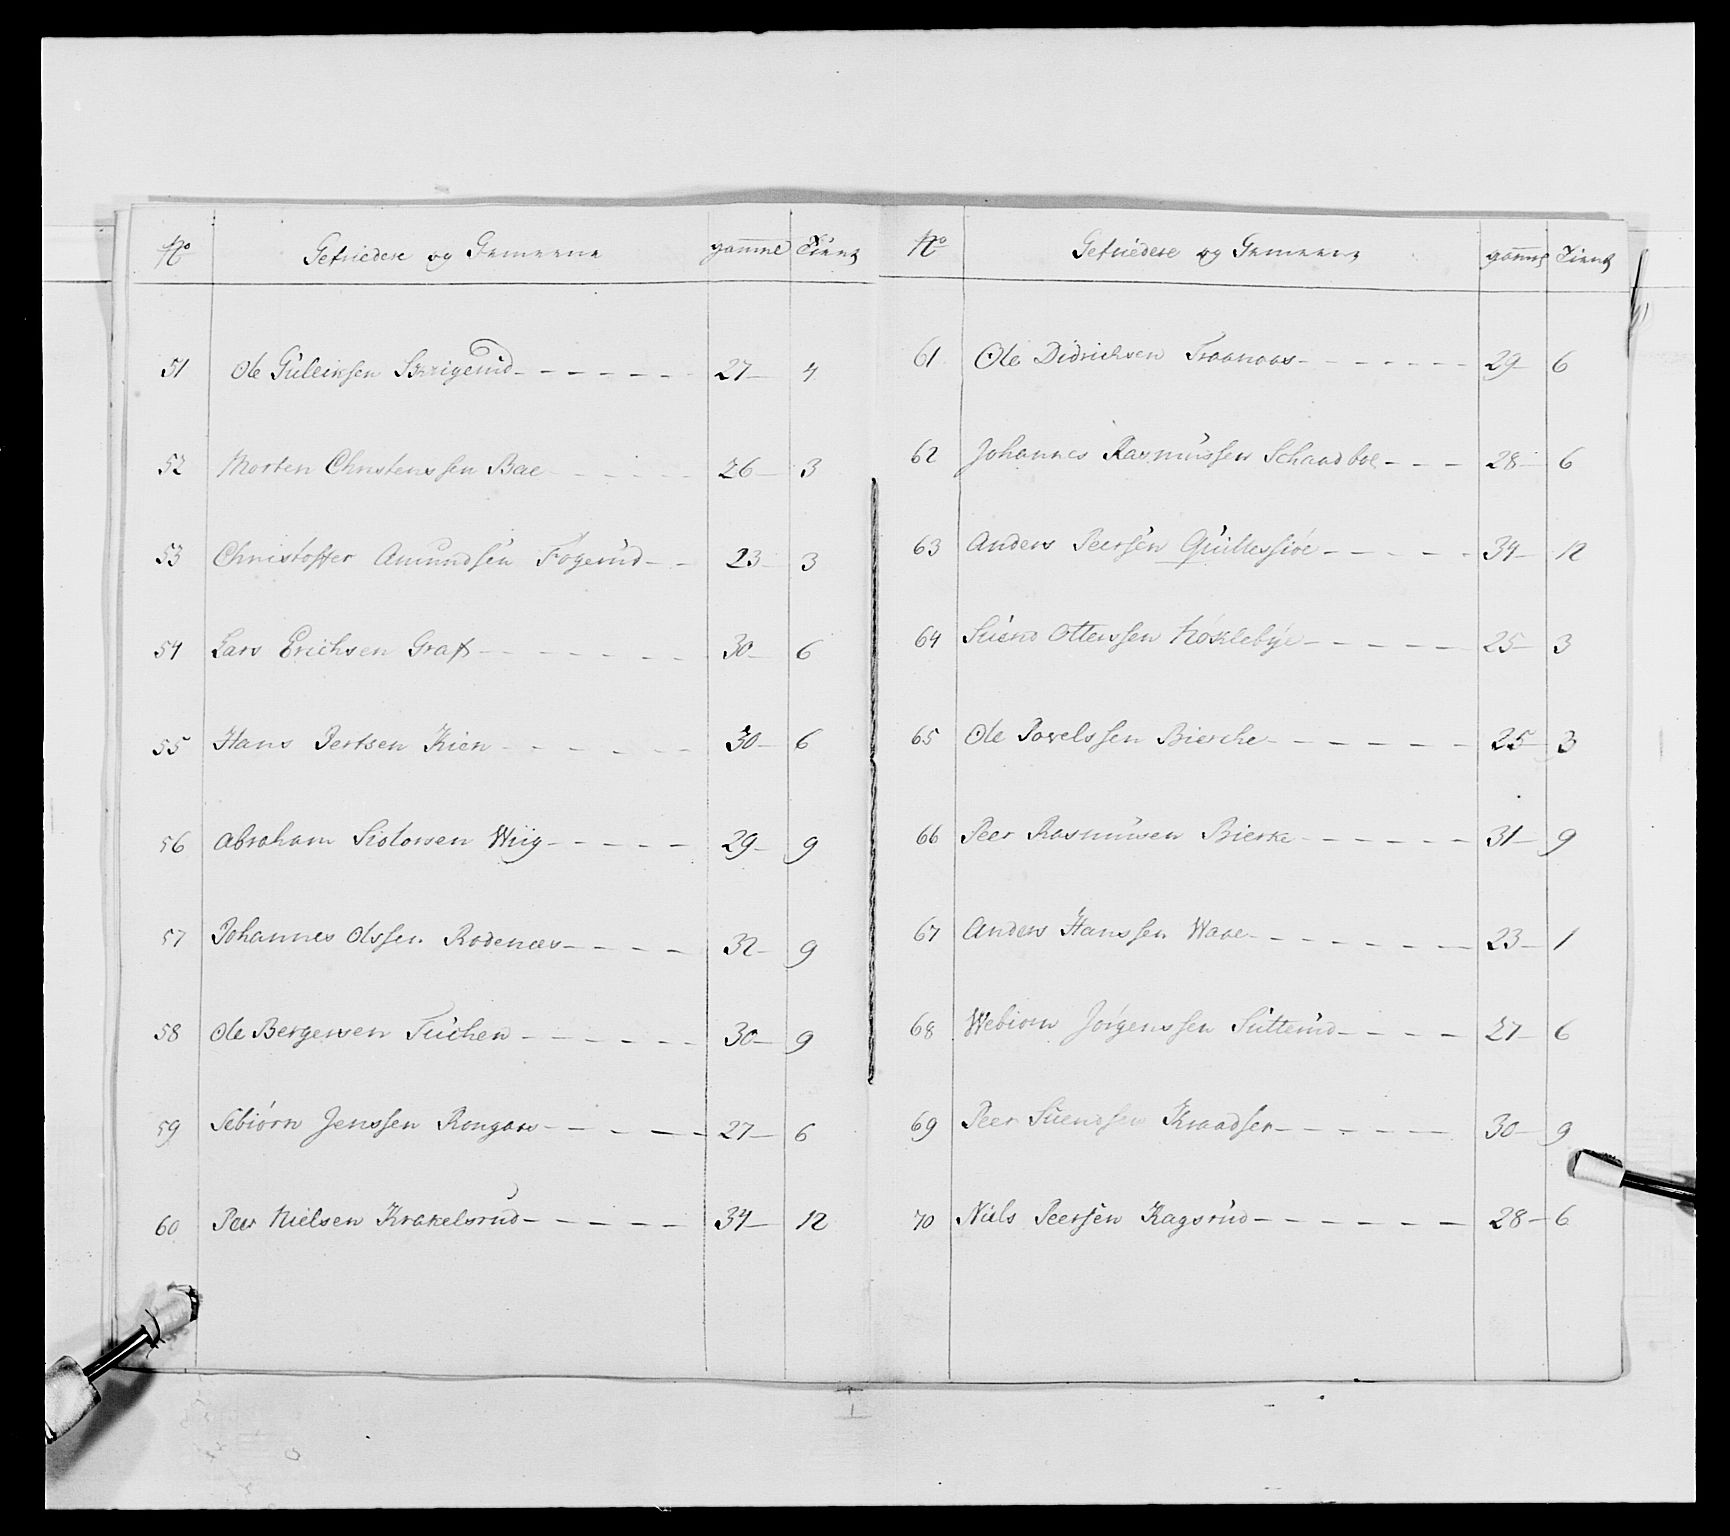 No Gefriedere og Gemeene gammel Tient
51 Ole Guleiksen 27 4
52 Morten Christenssen Bae 26 3
53 Christoffer Amundsen Fogerud 23 3
54 Lars Erichsen Graff 30 6
55 Hans Pertsen Kien 30 6
56 Abraham Wiig 29 9
57 Johannes Olssen Rodenæs 32 9
58 Ole Bergersen Tuchen 30 9
59 Sebiørn Jenssen Rongaas 27 6
60 Peer Nielsen Krakelsrud 34 12
No Gefriedere og Gemeene gammel Tient
61 Ole Didrichsen Traanaas 29 6
62 Johannes Rasmussen Schaadboe 28 6
63 Anders Peersen 34 12
64 Suend Ottenssen Høklebye 25 3
65 Ole Povelssen Bierche 25 3
66 Peer Rasmusen Bierke 31 9
67 Anders Hanssen 23 1
68 Webiorn Jørgenssen Sutterud 27 6
69 Peer Suendsen 30 9
70 Niels Peersen Kagsrud 28 6